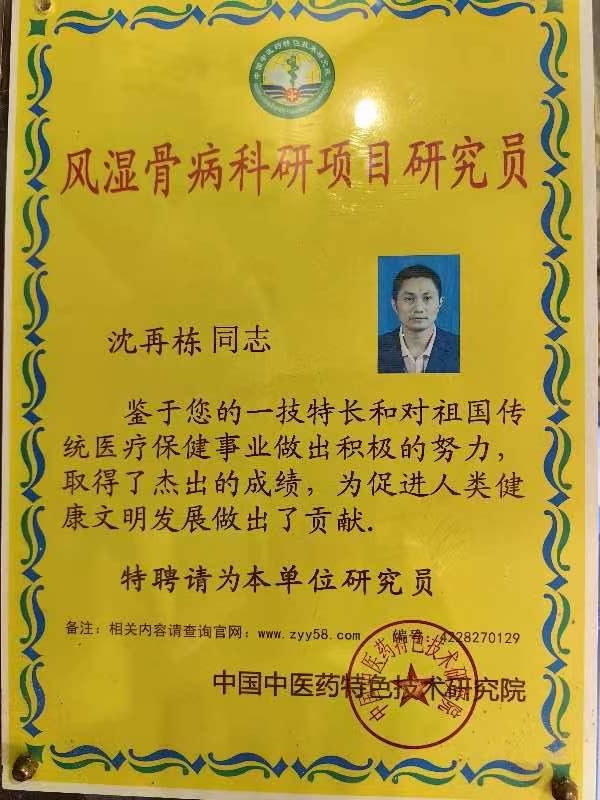 中国中医药特色技术研究院
风湿骨病科研项目研究员
沈再栋 同志
鉴于您的一技特长和对祖国传
统医疗保健事业做出积极的努力，
取得了杰出的成绩，为促进人类健
康文明发展做出了贡献.
特聘请为本单位研究员
备注：相关内容请查询官网：www.zyy58.com 编号：4228270129
中国中医药特色技术研究院
中国中医药特色技术研究院